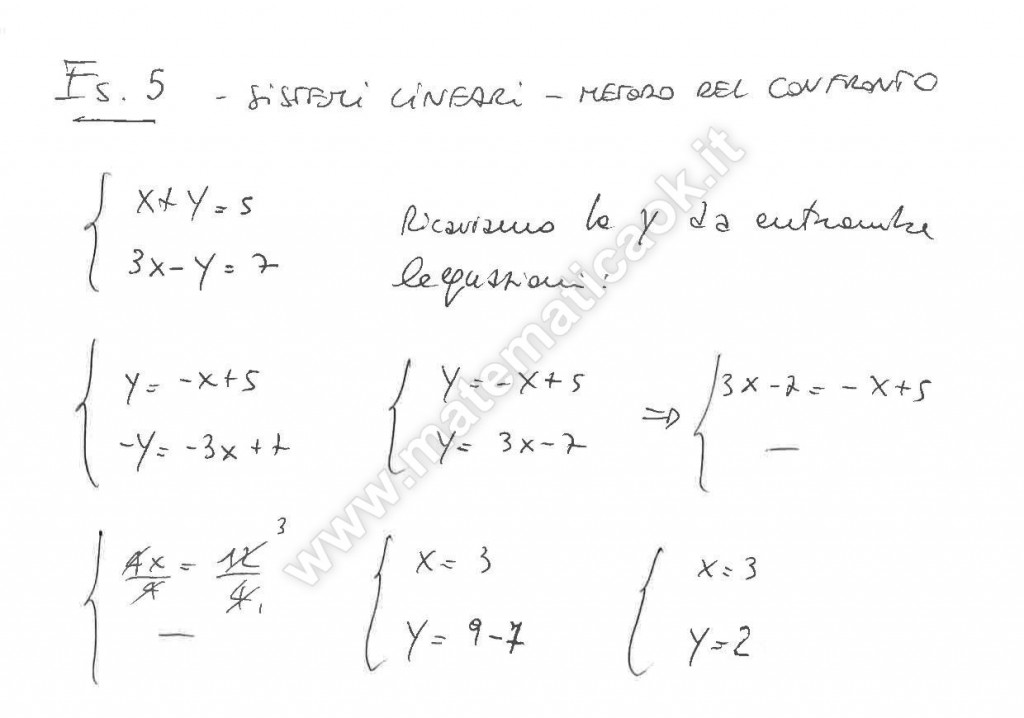 Es. 5 - SISTEMI LINEARI - METODO DEL CONFRONTO
x+y=5
3x-y=7
Ricaviamo la y da entrambe
le equazioni:
y=-x+5 y=-x+5 => 3x-7=-x+5
-y=-3x+7 y=3x-7 —
4x/4 = 12/4 3 1 x=3 x=3
— y=9-7 y=2
www.matematicaok.it